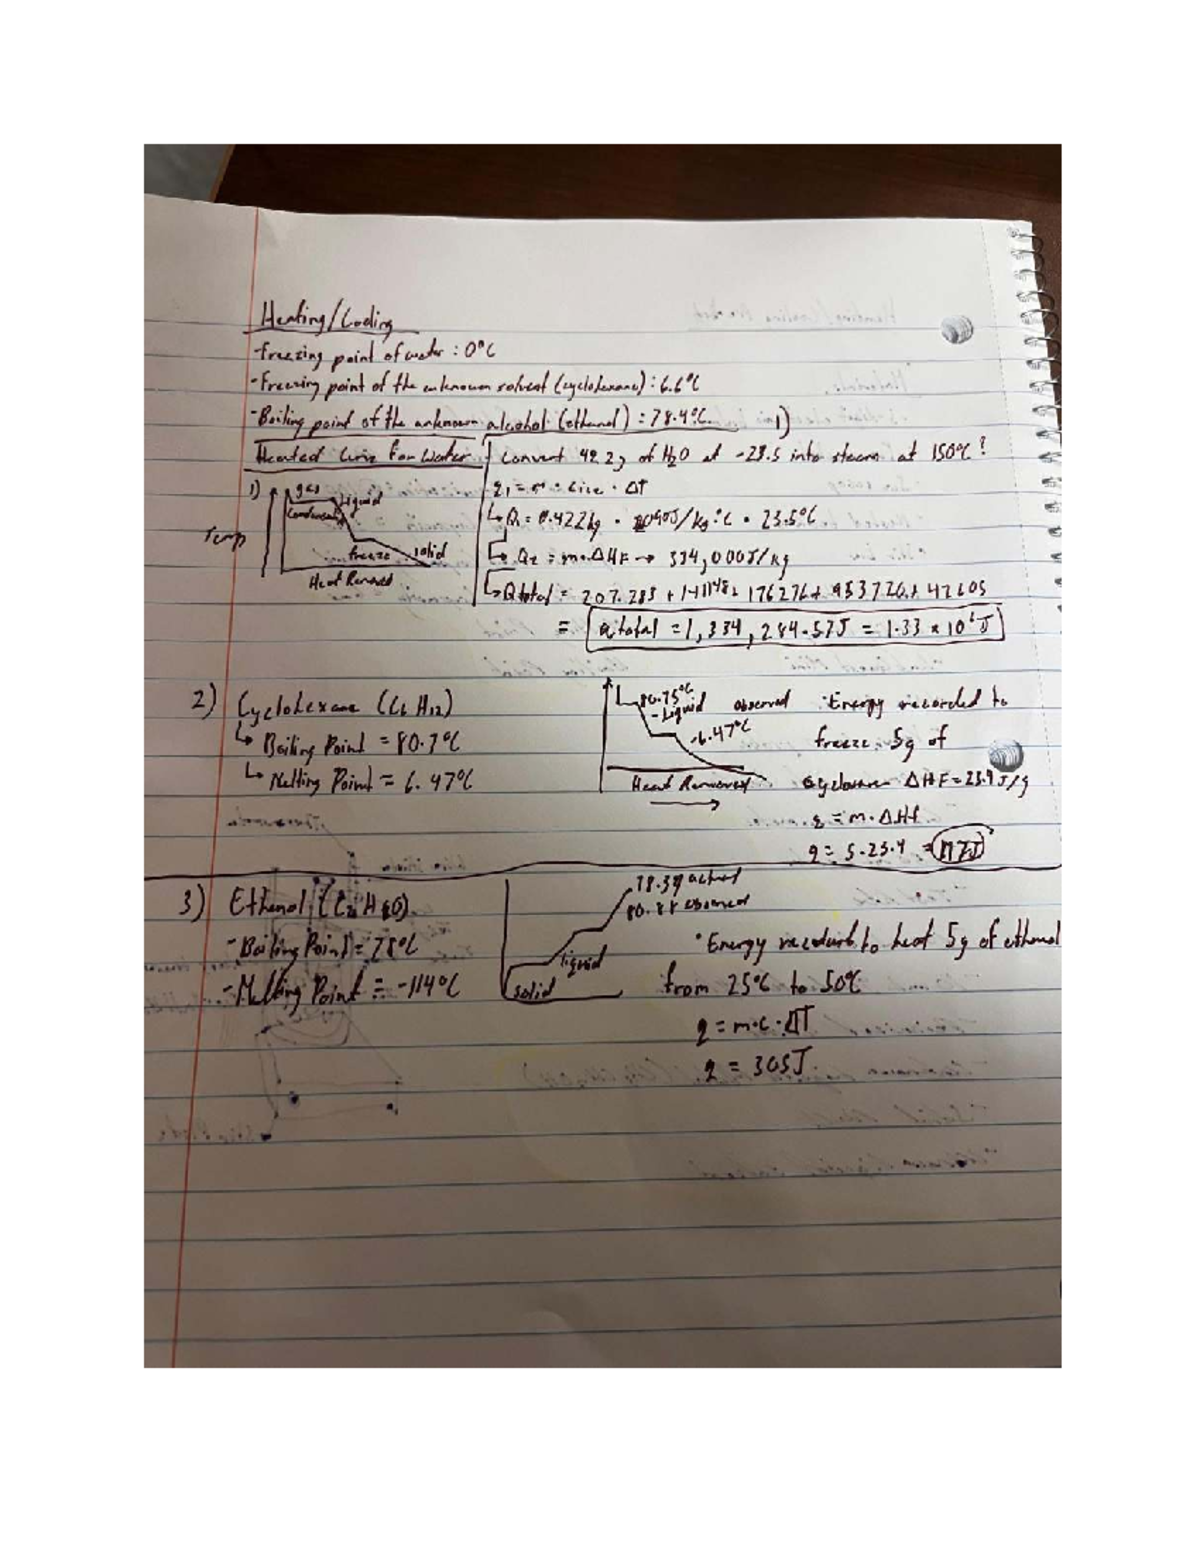 Heating/Cooling
-freezing point of water : 0°C
-Freezing point of the unknown solvent (cyclohexane) : 6.6°C
-Boiling point of the unknown alcohol (ethanol) : 78.4°C
Heated Curve for Water
1)
gas
Liquid
Condensed
freeze
solid
Temp
Heat Removed
1)
Convert 422g of H2O at -23.5 into steam at 150°C?
q1 = m · Cice · ΔT
Q1 = 0.422kg · 2090J/kg·°C · 23.5°C
Q2 = m·ΔHF → 334,000J/kg
Qtotal = 207.285 + 141148 + 176276 + 953720 + 47605
= qtotal = 1,334,284.57J = 1.33 x 10^6 J
2) Cyclohexane (C6 H12)
Boiling Point = 80.7°C
Melting Point = 6.47°C
80.75°C
-Liquid observed
-6.47°C
Heat Removed
Energy recorded to
freeze 5g of
ΔHF = 23.4J/g
q = m·ΔHf
q = 5·23.4 = 117J
3) Ethanol (C2H6O)
-Boiling Point = 78°C
-Melting Point = -114°C
78.39 actual
80.88 observed
liquid
solid
Energy to heat 5g of ethanol
from 25°C to 50°C
q = m·c·ΔT
q = 305J